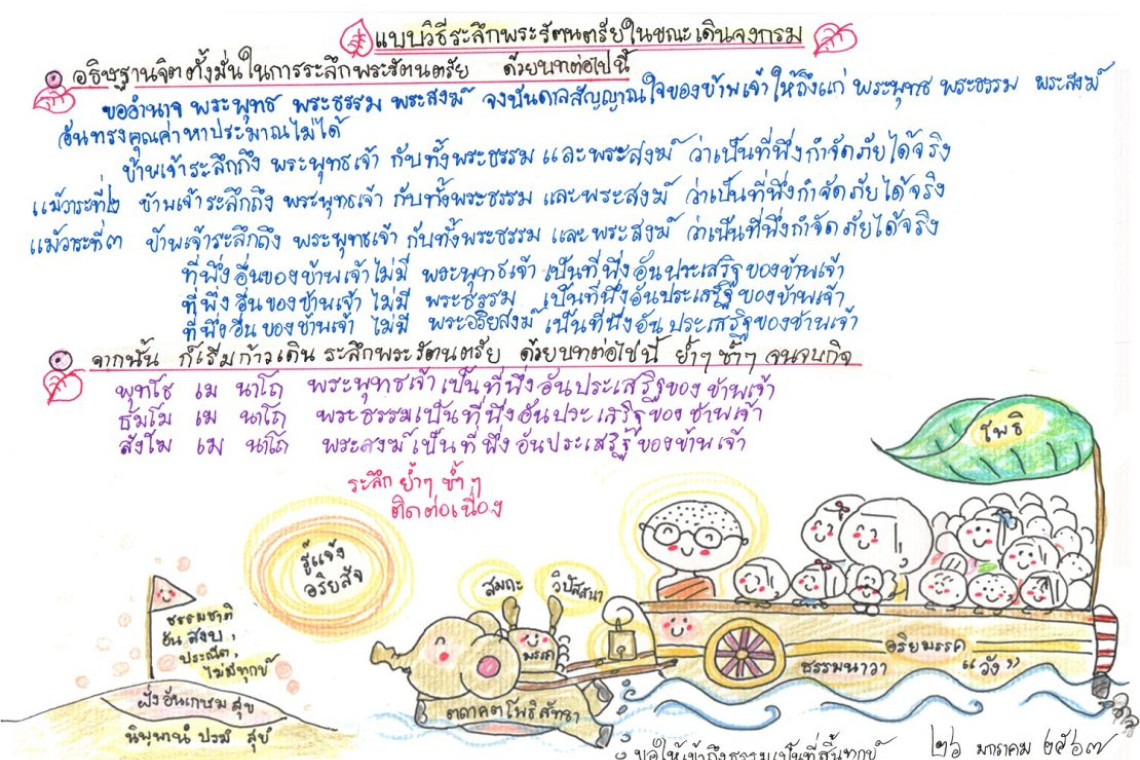 แบบวิธีระลึกพระรัตนตรัยในขณะเดินจงกรม
อธิษฐานจิตตั้งมั่นในการระลึกพระรัตนตรัย ด้วยบทต่อไปนี้
ขออำนาจ พระพุทธ พระธรรม พระสงฆ์ จงบันดาลสัญญาณใจของข้าพเจ้าให้ถึงแก่ พระพุทธ พระธรรม พระสงฆ์
อันทรงคุณค่าหาประมาณไม่ได้
ข้าพเจ้าระลึกถึง พระพุทธเจ้า กับทั้งพระธรรม และพระสงฆ์ ว่าเป็นที่พึ่งกำจัดภัยได้จริง
แม้วาระที่๒ ข้าพเจ้าระลึกถึง พระพุทธเจ้า กับทั้งพระธรรม และพระสงฆ์ ว่าเป็นที่พึ่งกำจัดภัยได้จริง
แม้วาระที่๓ ข้าพเจ้าระลึกถึง พระพุทธเจ้า กับทั้งพระธรรม และพระสงฆ์ ว่าเป็นที่พึ่งกำจัดภัยได้จริง
ที่พึ่งอื่นของข้าพเจ้าไม่มี พระพุทธเจ้า เป็นที่พึ่งอันประเสริฐของข้าพเจ้า
ที่พึ่งอื่นของข้าพเจ้า ไม่มี พระธรรม เป็นที่พึ่งอันประเสริฐของข้าพเจ้า
ที่พึ่งอื่นของข้าพเจ้า ไม่มี พระอริยสงฆ์ เป็นที่พึ่งอันประเสริฐของข้าพเจ้า
จากนั้น ก็เริ่มก้าวเดิน ระลึกพระรัตนตรัย ด้วยบทต่อไปนี้ ย้ำๆ ซ้ำๆ จนจบกิจ
พุทโธ เม นาโถ พระพุทธเจ้าเป็นที่พึ่งอันประเสริฐของข้าพเจ้า
ธัมโม เม นาโถ พระธรรมเป็นที่พึ่งอันประเสริฐของข้าพเจ้า
สังโฆ เม นาโถ พระสงฆ์เป็นที่พึ่งอันประเสริฐของข้าพเจ้า
ระลึก ย้ำๆ ซ้ำๆ
ติดต่อเนื่อง
โพธิ
รู้แจ้ง
อริยสัจ
สมถะ
วิปัสสนา
มรรค
ธรรมชาติ
อัน สงบ,
ประณีต,
ไม่มีทุกข์
ฝั่งอันเกษม สุข
นิพฺพานํ ปรมํ สุขํ
ตถาคตโพธิสัทธา
อริยมรรค
ธรรมนาวา "วัง"
ขอให้เข้าถึงธรรมเป็นที่สิ้นทุกข์
๒๖ มกราคม ๒๕๖๗